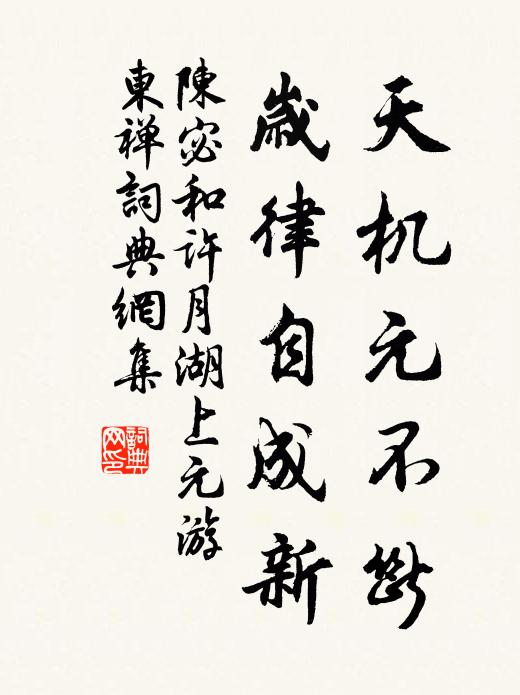 天机元不断
歳律自成新
陳宓和许月湖上元游
東禅詞典網集
詞典网印